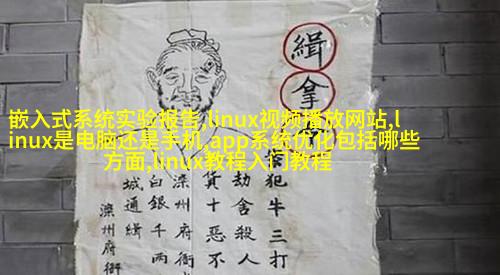 嵌入式系统实验报告,linux视频播放网站,l
inux是电脑还是手机,app系统优化包括哪些
方面,linux教程入门教程
緝拿
犯牛三打
劫舍殺人
十惡不
滦州府衙
白銀千兩
城通緝
滦州府衙